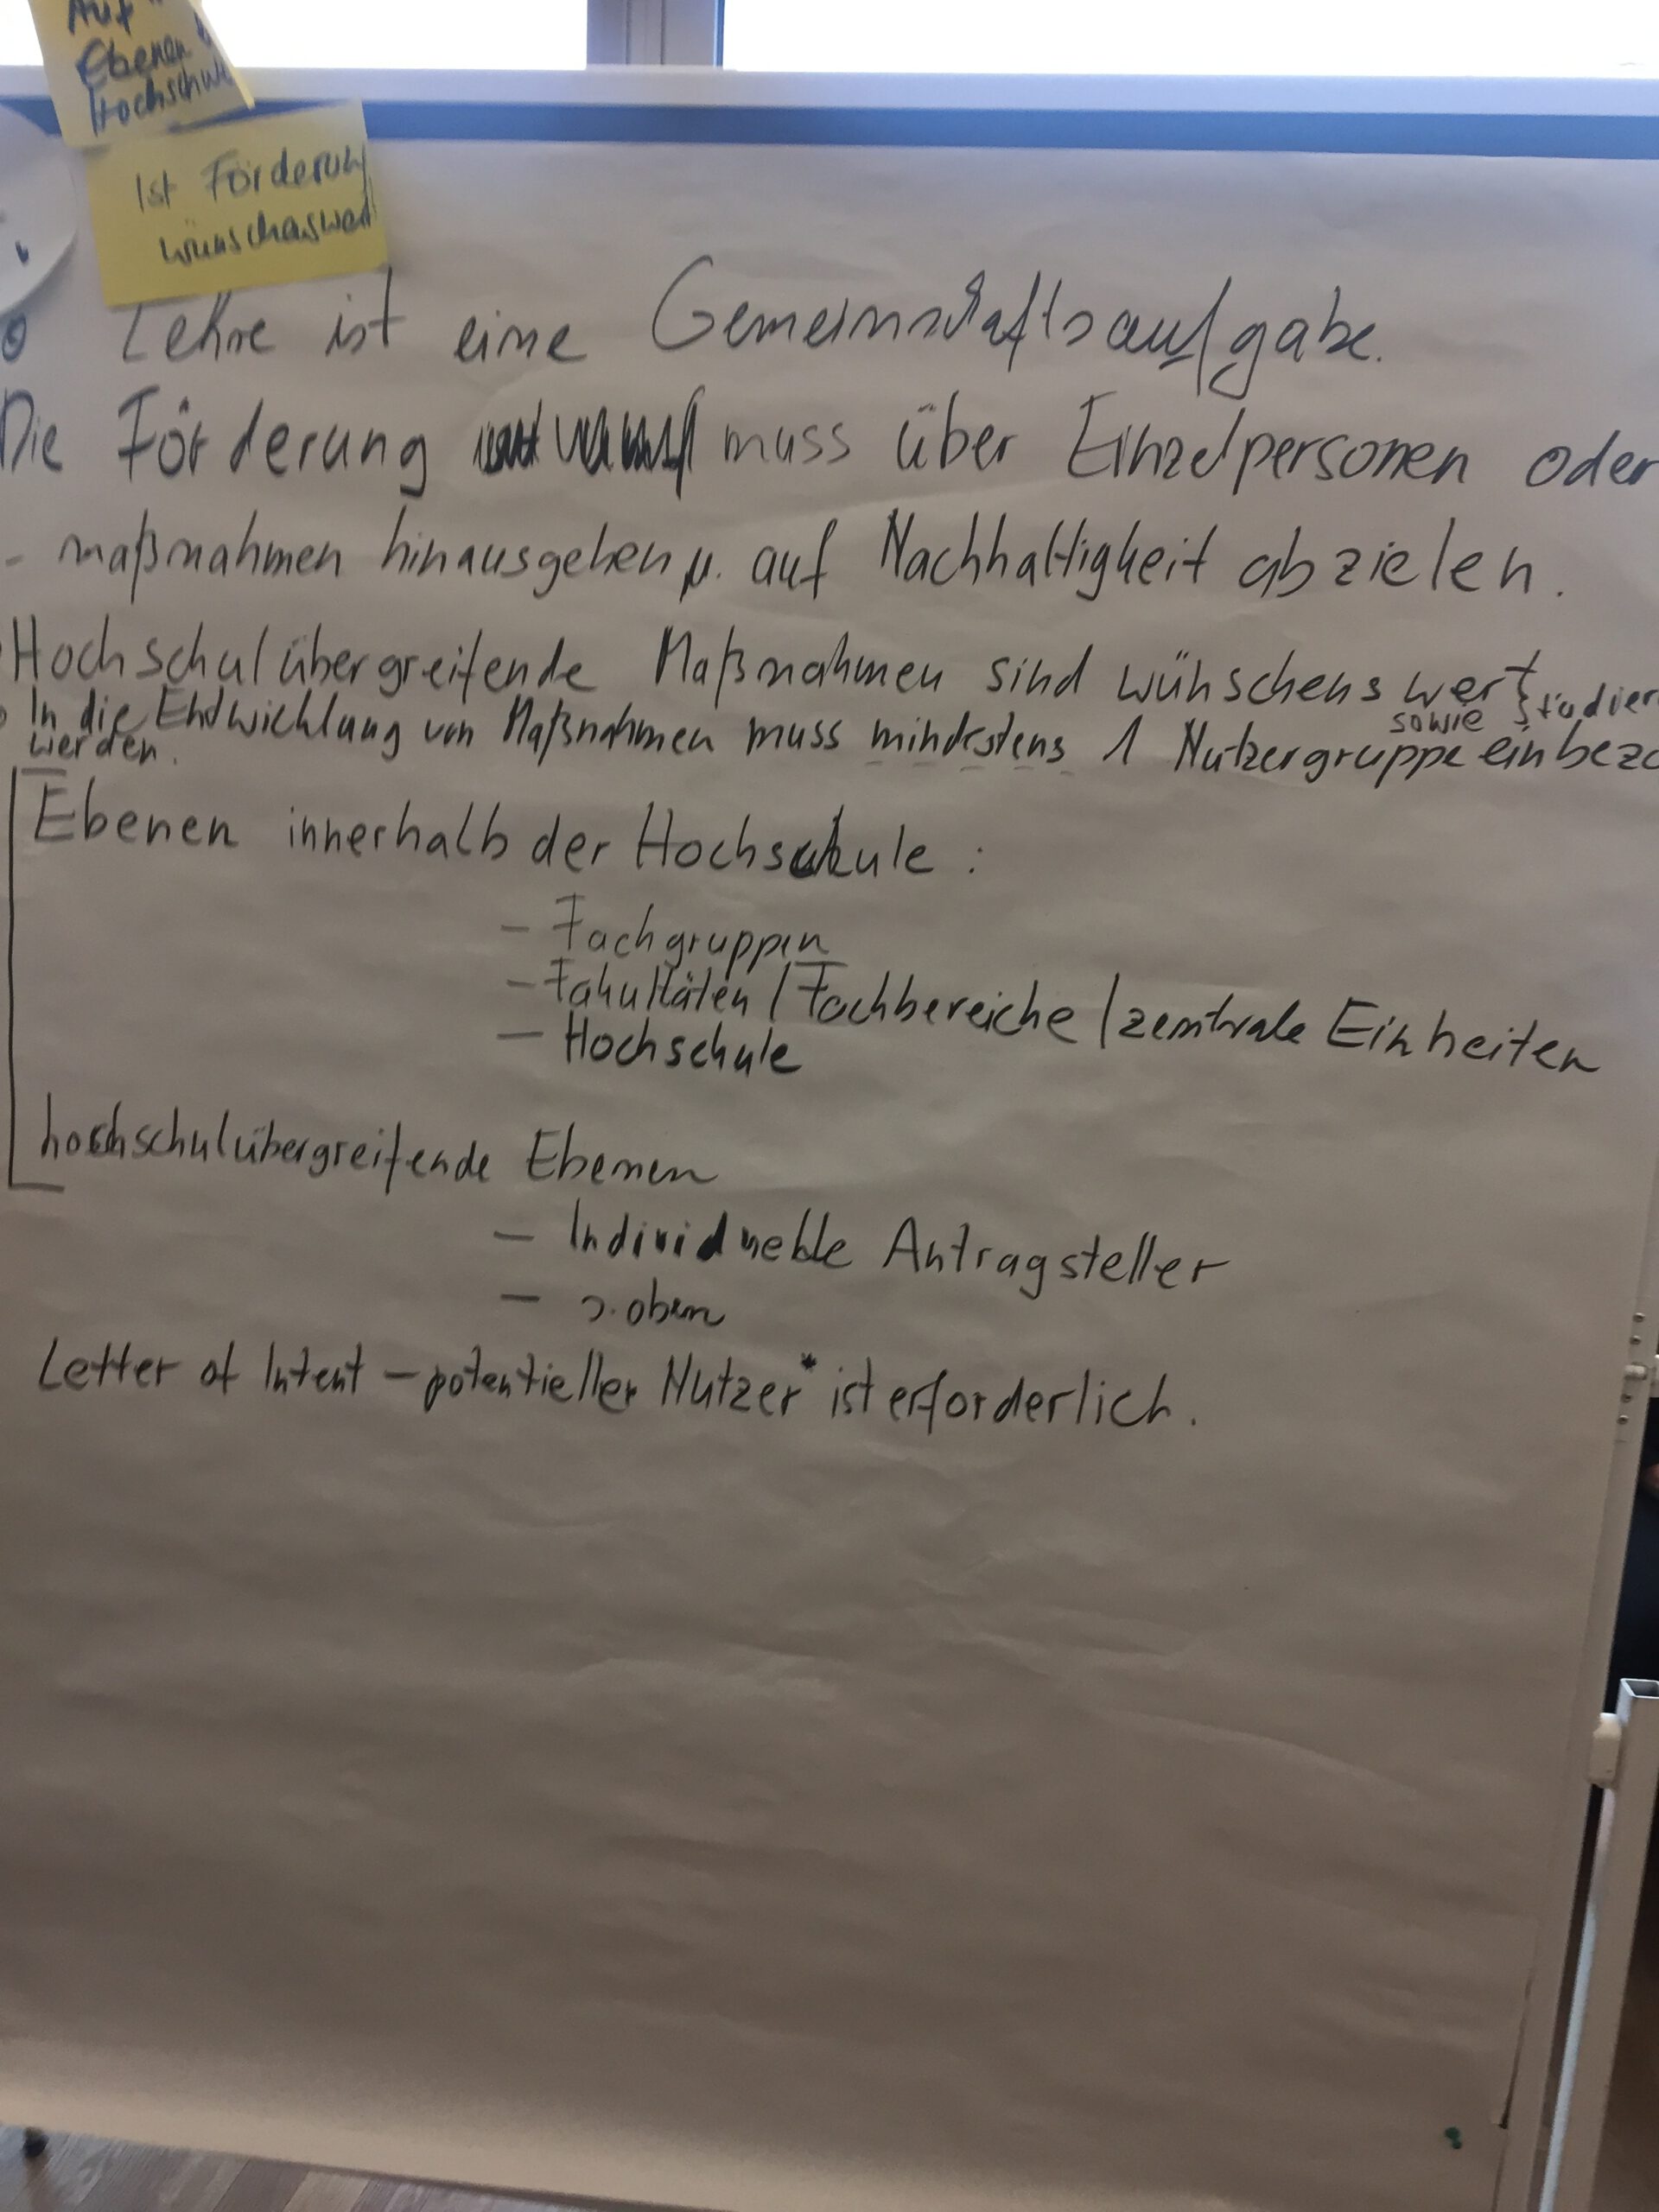 Auf
Ebenen
Hochschul
Ist Förderung
wünschenswert
Lehre ist eine Gemeinschaftsaufgabe.
Die Förderung muss über Einzelpersonen oder
- maßnahmen hinausgehen u. auf Nachhaltigkeit abzielen.
Hochschulübergreifende Maßnahmen sind wünschenswert
sowie Studier
In die Entwicklung von Maßnahmen muss mindestens 1 Nutzergruppe einbezo
werden.
Ebenen innerhalb der Hochschule :
- Fachgruppen
- Fakultäten / Fachbereiche / zentrale Einheiten
- Hochschule
hochschulübergreifende Ebenen
- Individuelle Antragsteller
- s. oben
Letter of Intent - potentieller Nutzer* ist erforderlich.